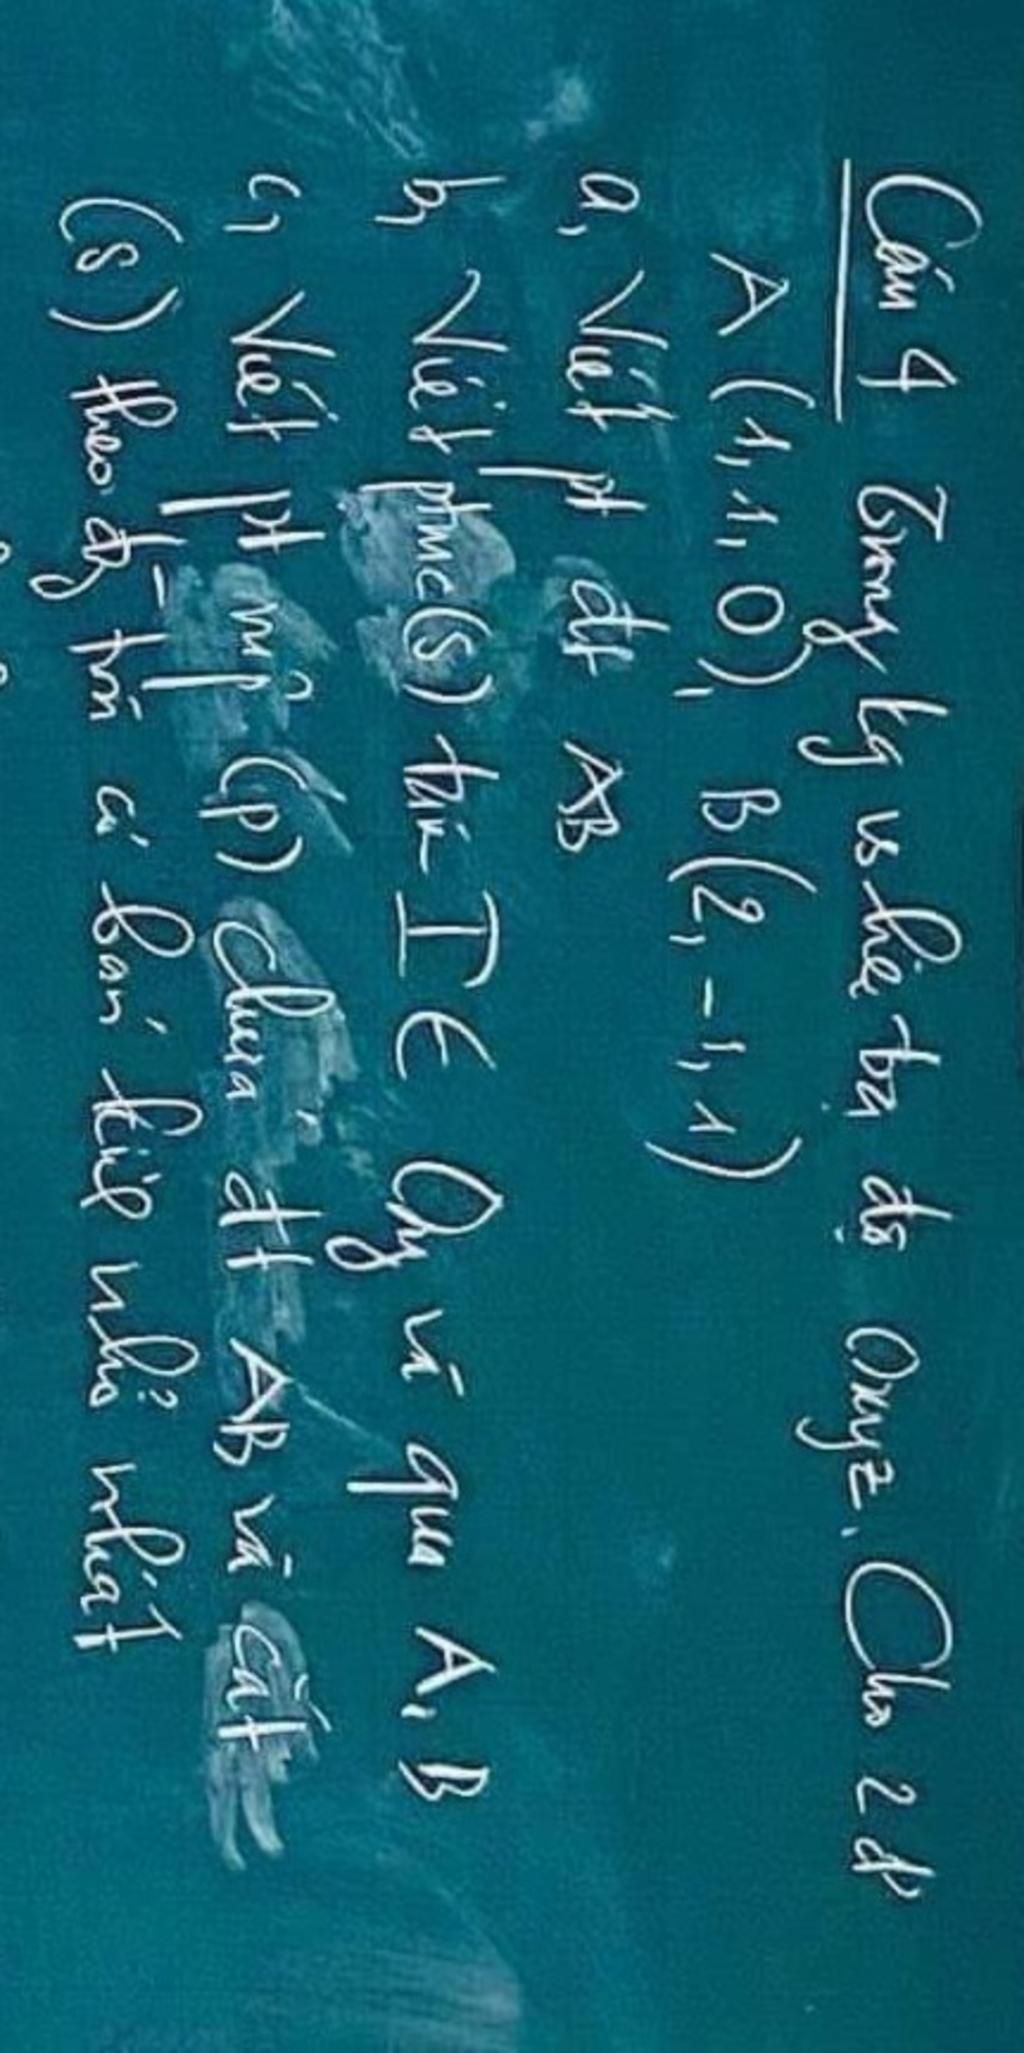 Câu 4 Trong kg vs hệ tọa độ Oxyz. Cho 2 đ'
A (1, 1, 0), B(2, -1, 1)
a, Viết pt đt AB
b, Viết ptmc(s) tâm I ∈ Oy và qua A, B
c, Viết pt mp (p) chứa đt AB và cắt
(s) theo đg tròn có bán kính nhỏ nhất